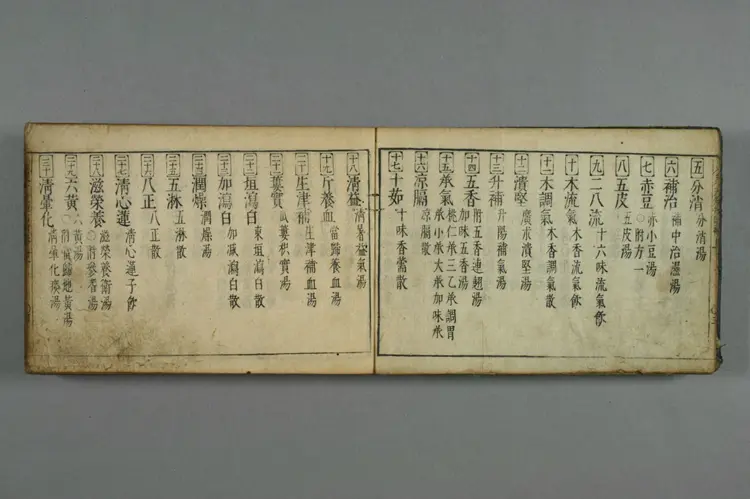 五 分清 分清湯
六 補治 補中治濕湯
七 赤豆 赤小豆湯 ○附方一
八 五皮 五皮湯
九 二八流 十六味流氣飲
十 木流氣 木香流氣飲
十一 木調氣 木香調氣散
十二 潰堅 廣朮潰堅湯
十三 升補 升陽補氣湯
十四 五香 附五香連翹湯 加味五香湯
十五 承氣 桃仁承三乙承調胃 承小承大承加味承
十六 凉膈 凉膈散
十七 十茹 十味香薷散
十八 清益 清暑益氣湯
十九 斤養血 當歸養血湯
二十 生津補 生津補血湯
二十一 蔞實 瓜蔞枳實湯
二十二 垣瀉白 東垣瀉白散
二十三 加瀉白 加减瀉白散
二十四 潤燥 潤燥湯
二十五 五淋 五淋散
二十六 八正 八正散
二十七 清心蓮 清心蓮子飲
二十八 滋榮養 滋榮養衛湯
二十九 六黃 六黃湯 ○附當歸地黃湯
三十 清暈化 清暈化痰湯